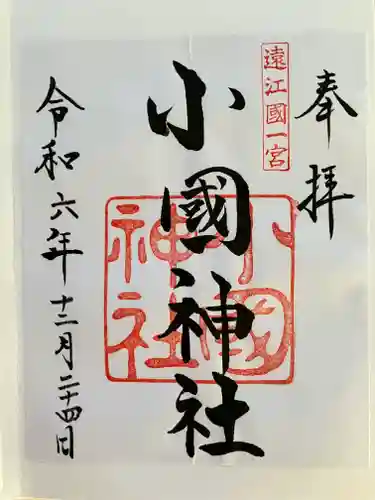 奉拝
遠江國一宮
小國神社
小國神社
令和六年十二月二十四日